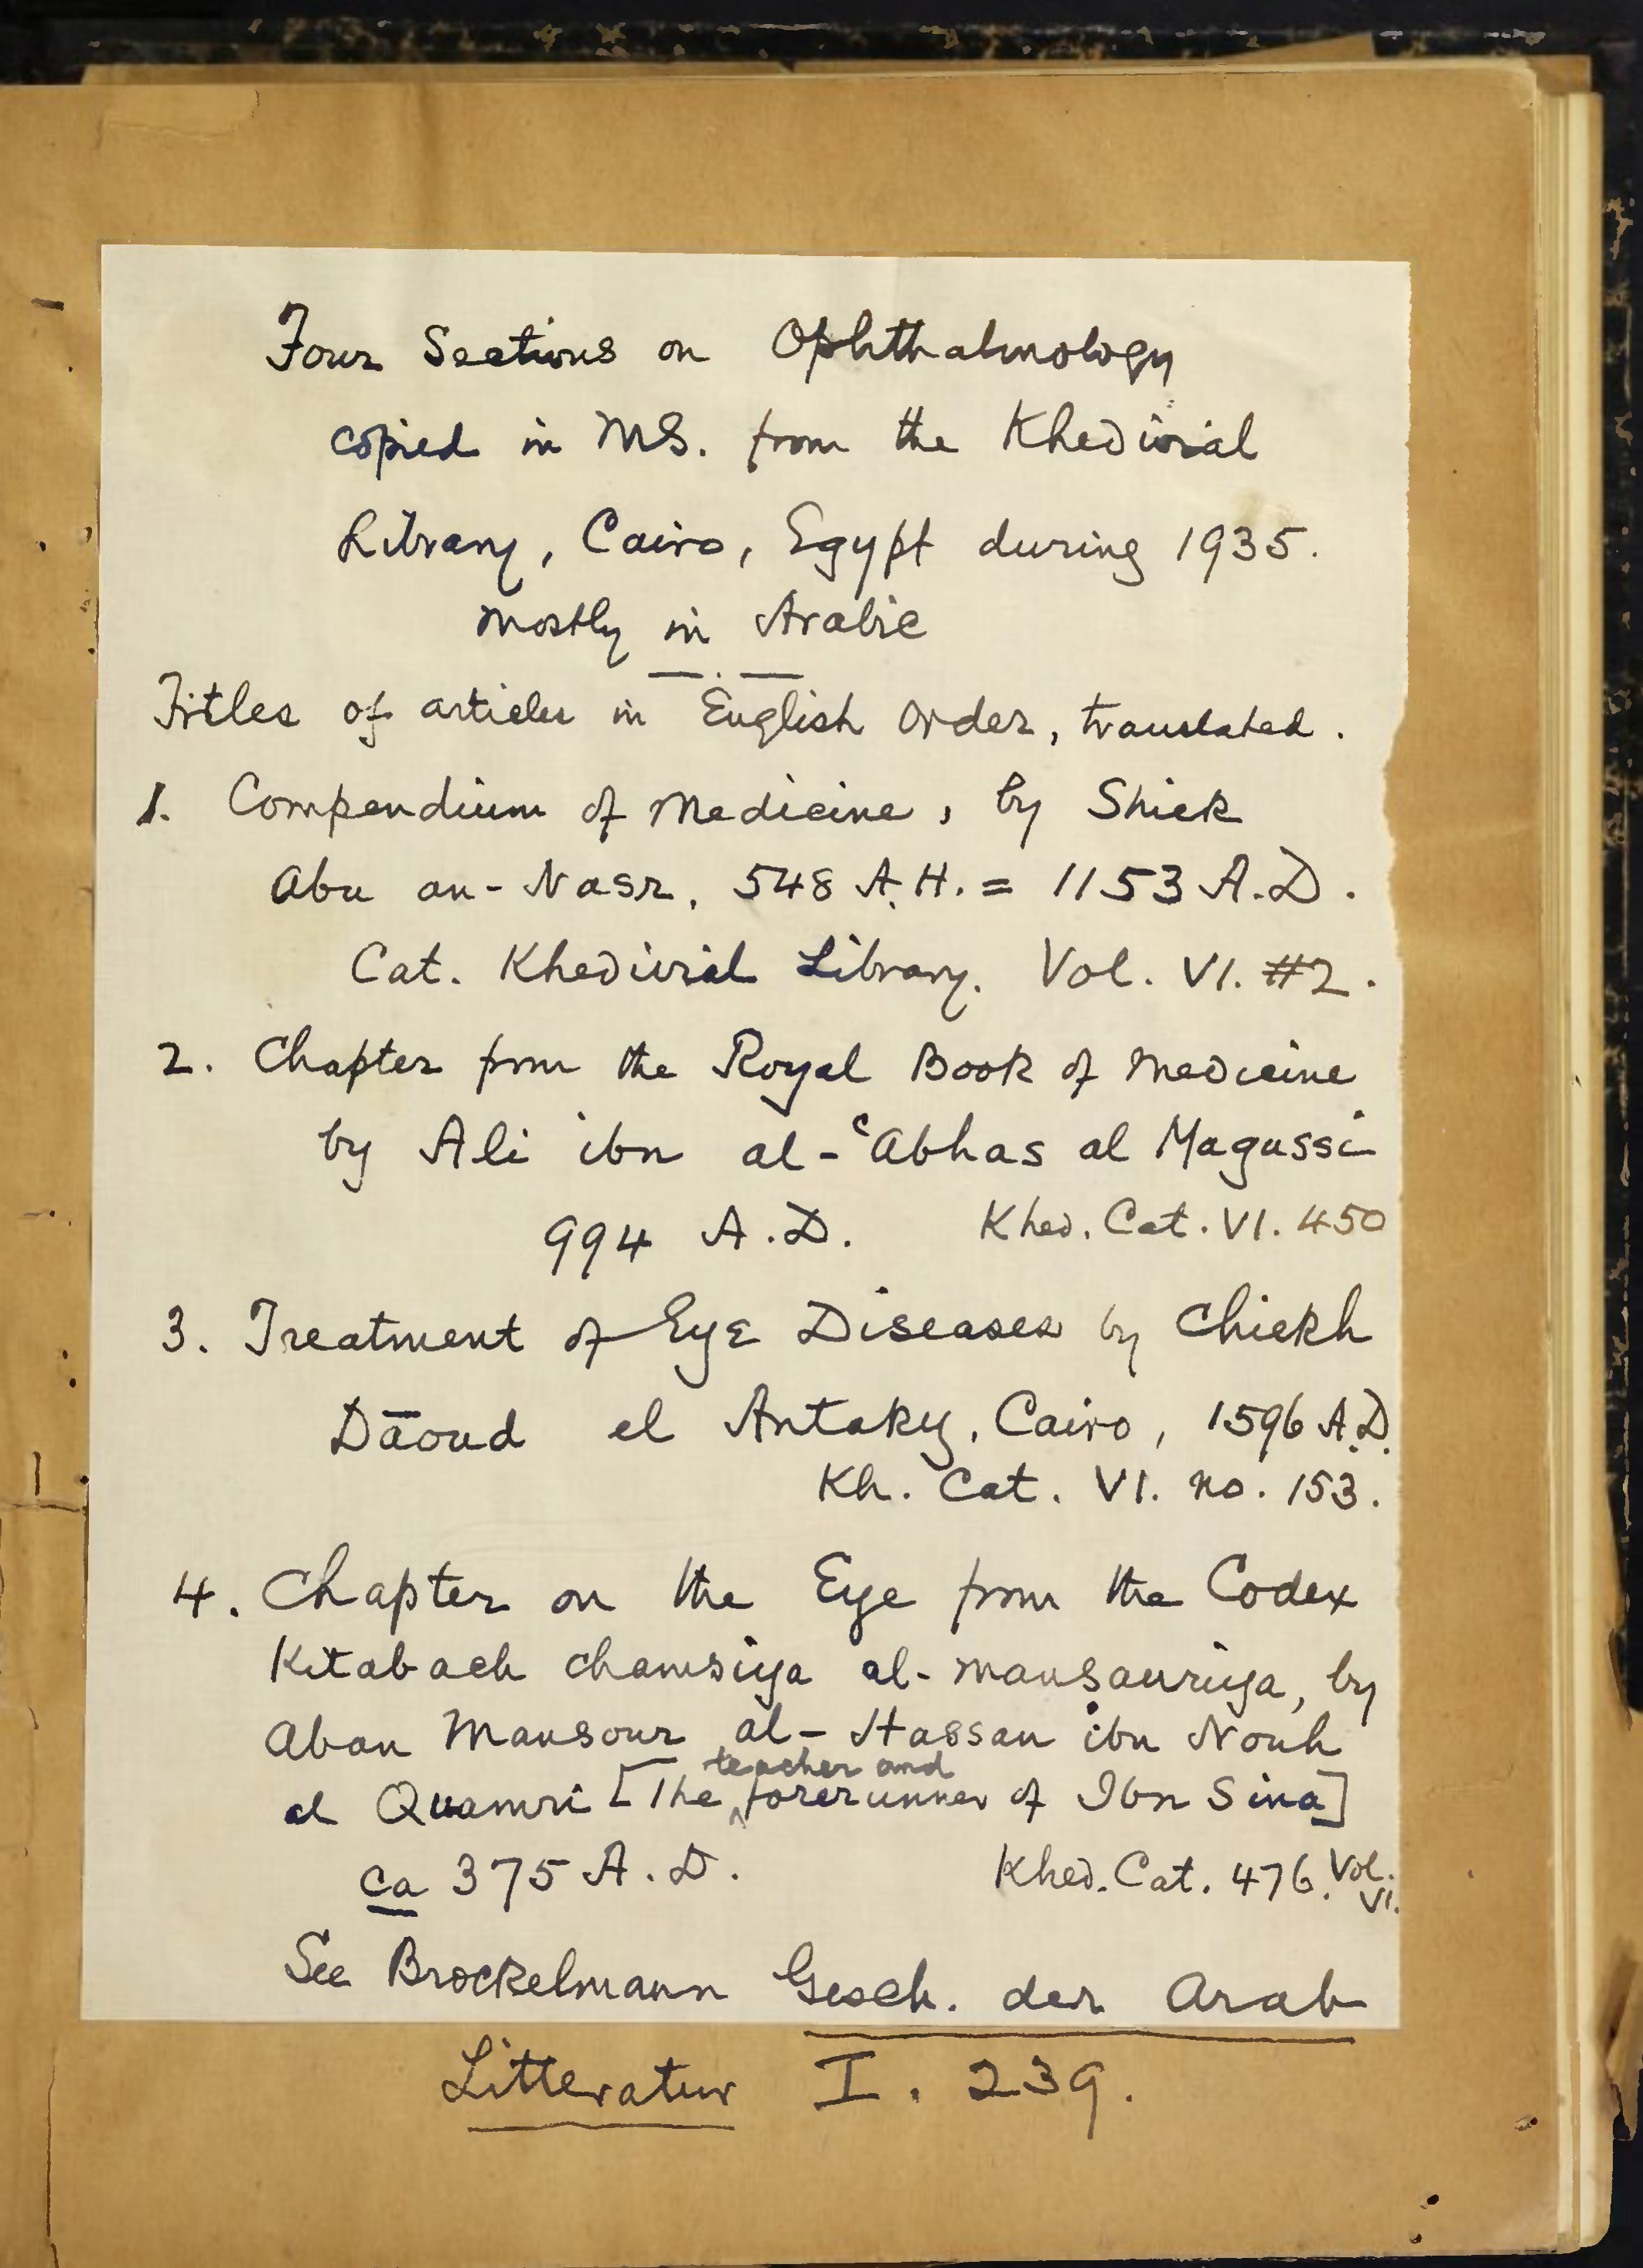 Four Sections on Ophthalmology
copied in MS. from the Khedivial
Library, Cairo, Egypt during 1935.
mostly in Arabic
Titles of articles in English order, translated.
1. Compendium of Medicine, by Shiek
Abu an-Nasr, 548 A.H. = 1153 A.D.
Cat. Khedivial Library. Vol. VI. #2.
2. Chapter from the Royal Book of Medicine
by Ali ibn al-ʿAbhas al Magussi
994 A.D. Khed. Cat. VI. 450
3. Treatment of Eye Diseases by Chiekh
Dāoud el Antaky, Cairo, 1596 A.D.
Kh. Cat. VI. no. 153.
4. Chapter on the Eye from the Codex
Kitab ach chamsiya al-mansauriya, by
Abou Mansour al-Hassan ibn Nouh
teacher and
al Quamri [The forerunner of Ibn Sina]
ca 375 A.D. Khed. Cat. 476. Vol. VI.
See Brockelmann Gesch. der Arab
Litteratur I. 239.